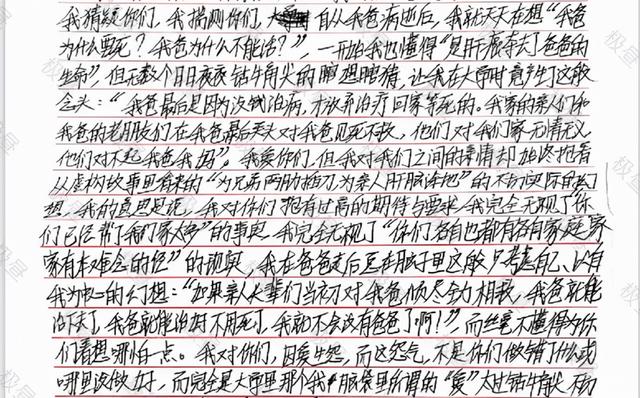 我猜疑你们，我揣测你们，自从我爸病逝后，我就天天在想“我爸
为什么要死？我爸为什么不能活？”，一开始我也懂得“是肝癌夺去了爸爸的
生命”，但无数个日日夜夜钻牛角尖的瞎想瞎猜，让我在大学时竟产生了这般
念头：“我爸最后是因为没钱治病，才放弃治疗回家等死的。我家的亲人们和
我爸的老朋友们在我爸最后关头对我爸见死不救，他们对我们家无情无义
他们对不起我爸我妈”。我爱你们，但我对我们之间的事情却始终抱着
从虚构故事里看来的“为兄弟两肋插刀为亲人肝脑涂地”的不切实际的幻
想，我的意思是说，我对你们抱有过高的期待与要求，我完全无视了“你
们已经帮了我们家太多”的事实，我完全无视了“你们各自也都有各自家庭，家
家有本难念的经”的现实，我在爸爸走后总在脑子里这般只考虑自己、以自
我为中心的幻想：“如果亲人长辈们当初对我爸倾尽全力相救，我爸就能
治好了，我爸就能治好不用死了，我就不会没有爸爸了啊！”，而丝毫不懂得为你
们着想哪怕一点。我对你们，因爱生怨，而这怨气，不是你们做错了什么或
哪里没做好，而完全是大学里那个我脑袋里所谓的“爱”太过钻牛角尖、
极昼